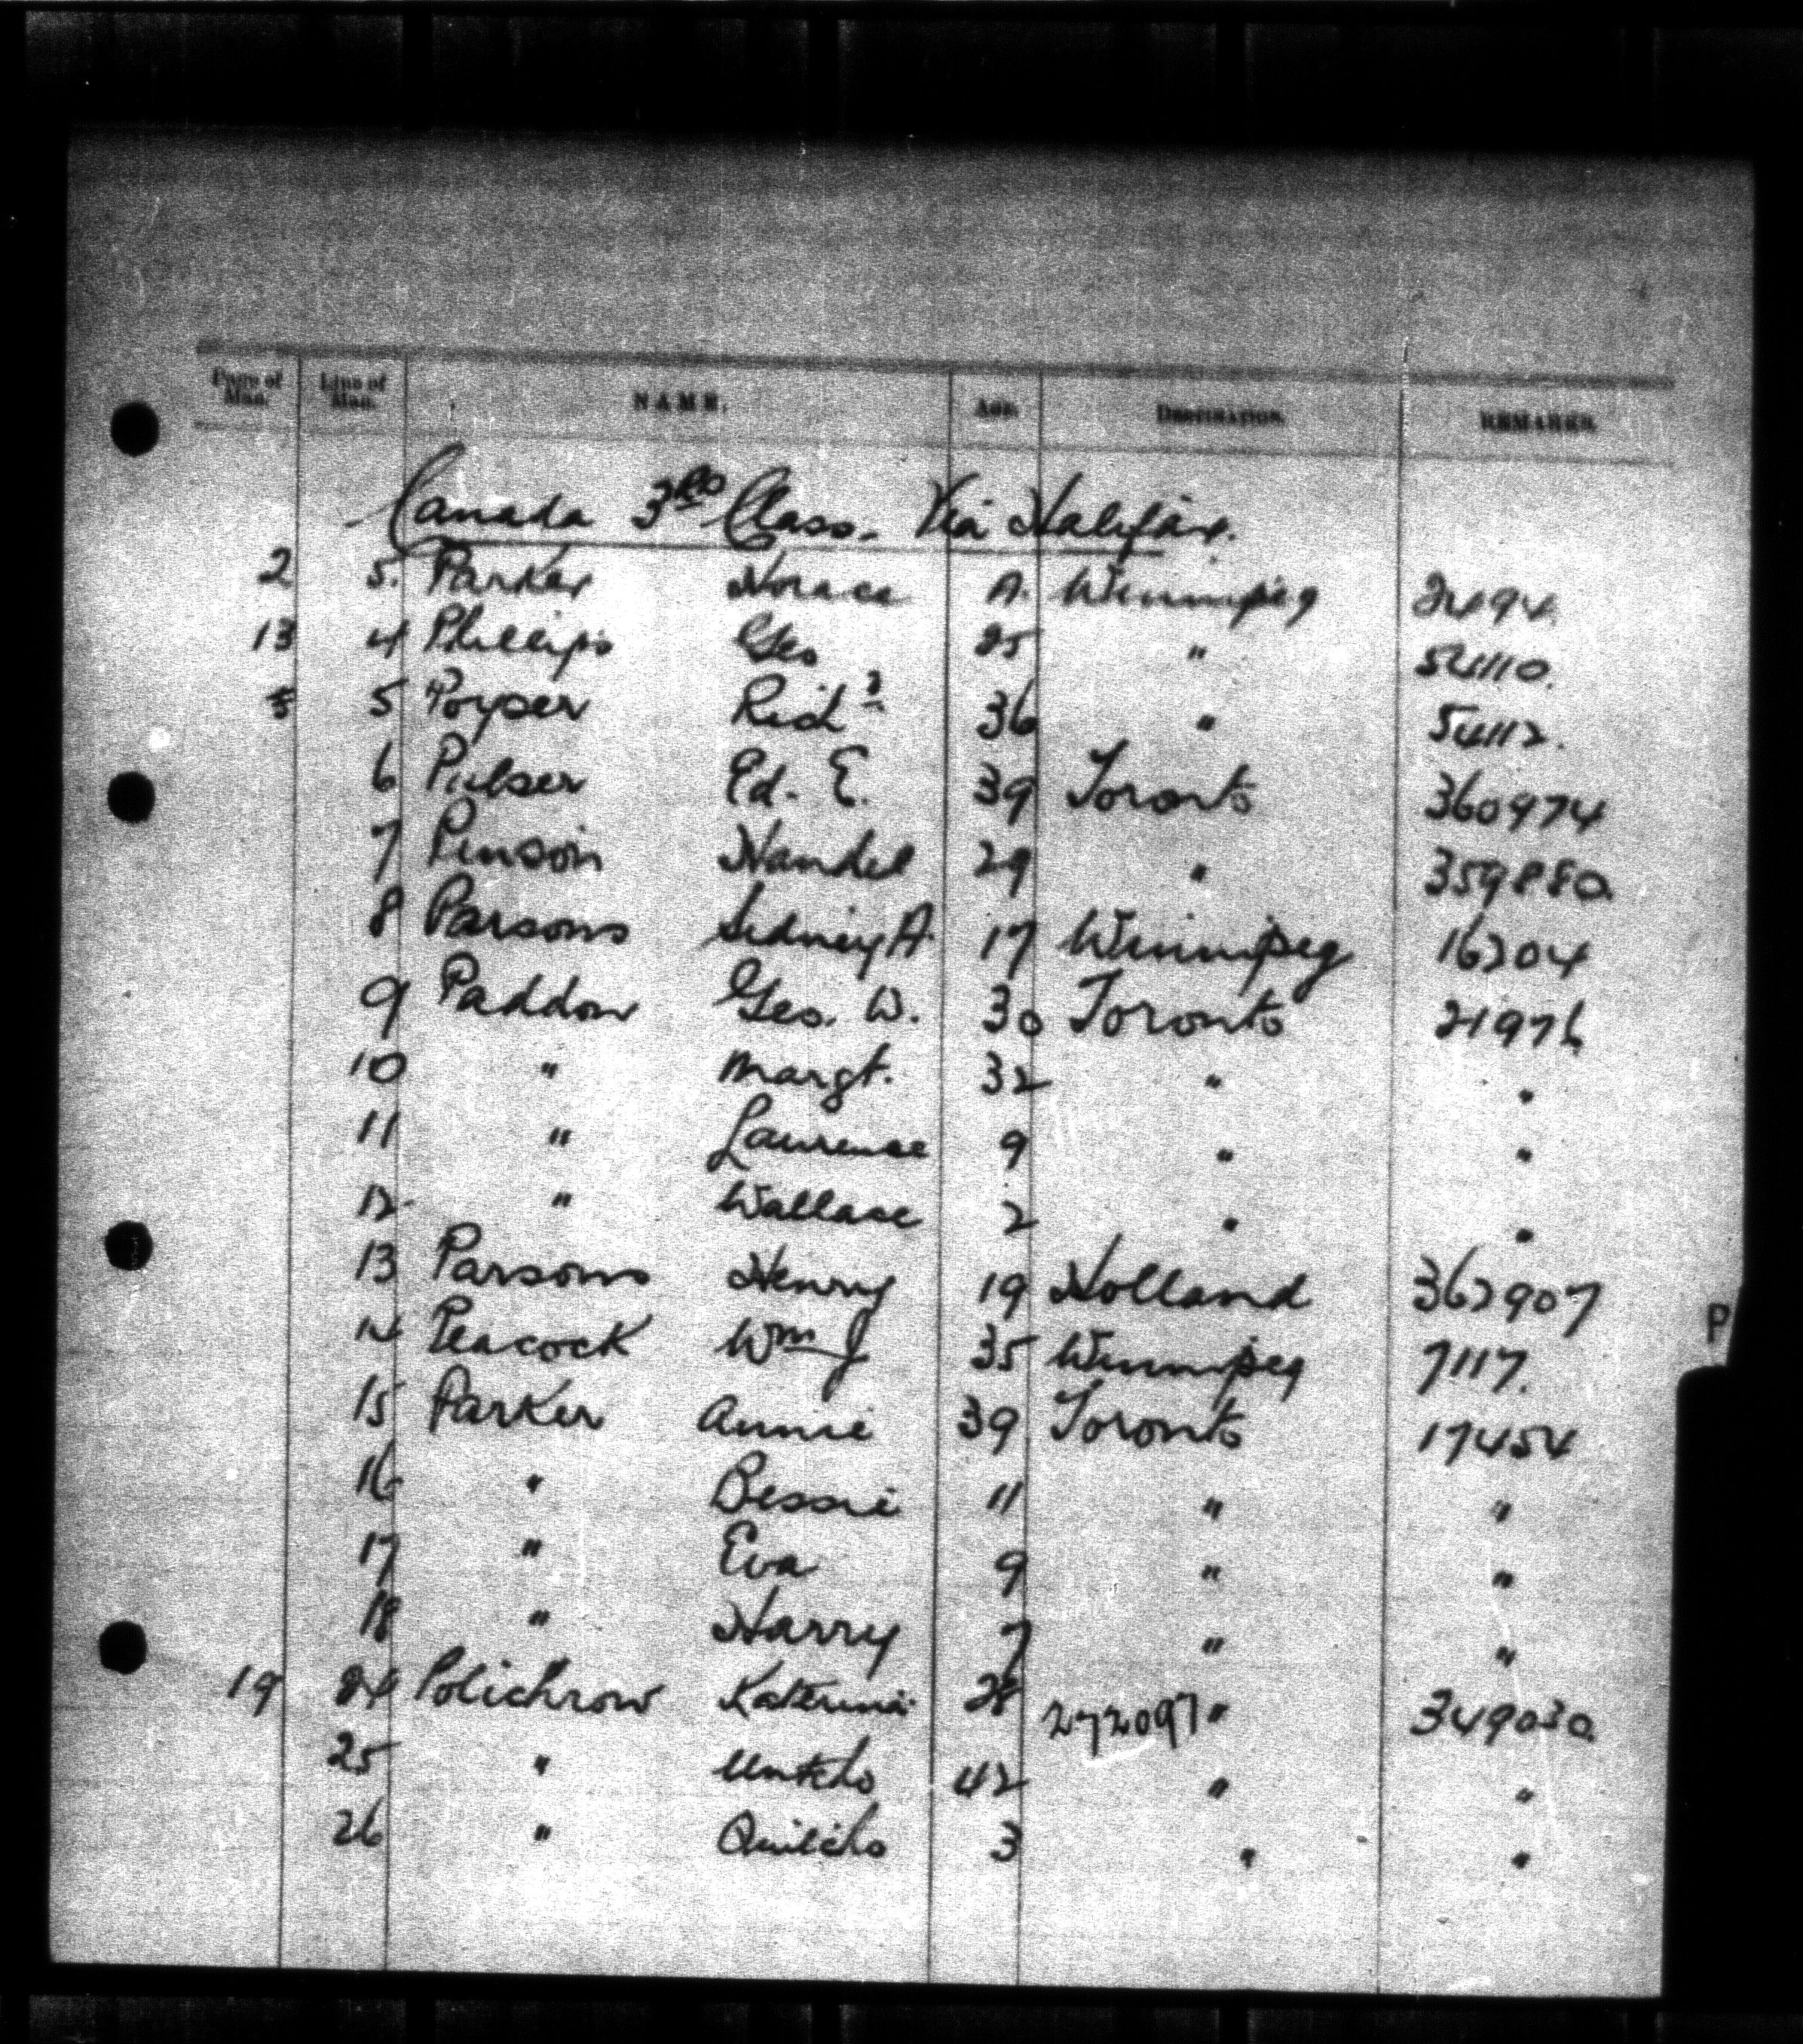 Page of Man. Line of Man. NAME. AGE. DESTINATION. REMARKS.
Canada 3RD Class. Via Halifax.
2 5. Parker Horace A. Winnipeg 2494.
13 4 Phillips Geo 25 " 54110.
5 Poyser Richd 36 " 54112.
6 Pulser Ed. E. 39 Toronto 360974
7 Pinson Handel 29 " 359880.
8 Parsons Sidney A. 17 Winnipeg 16204
9 Paddon Geo. W. 30 Toronto 21976
10 " Margt. 32 " "
11 " Laurence 9 " "
12. " Wallace 2 " "
13 Parsons Henry 19 Holland 362907
14 Peacock Wm J 35 Winnipeg 7117.
P
15 Parker Annie 39 Toronto 17454
16 " Bessie 11 " "
17 " Eva 9 " "
18 " Harry 7 " "
19 24 Polichrow Katerina 28 272097 " 349030.
25 " 42 " "
26 " 3 " "